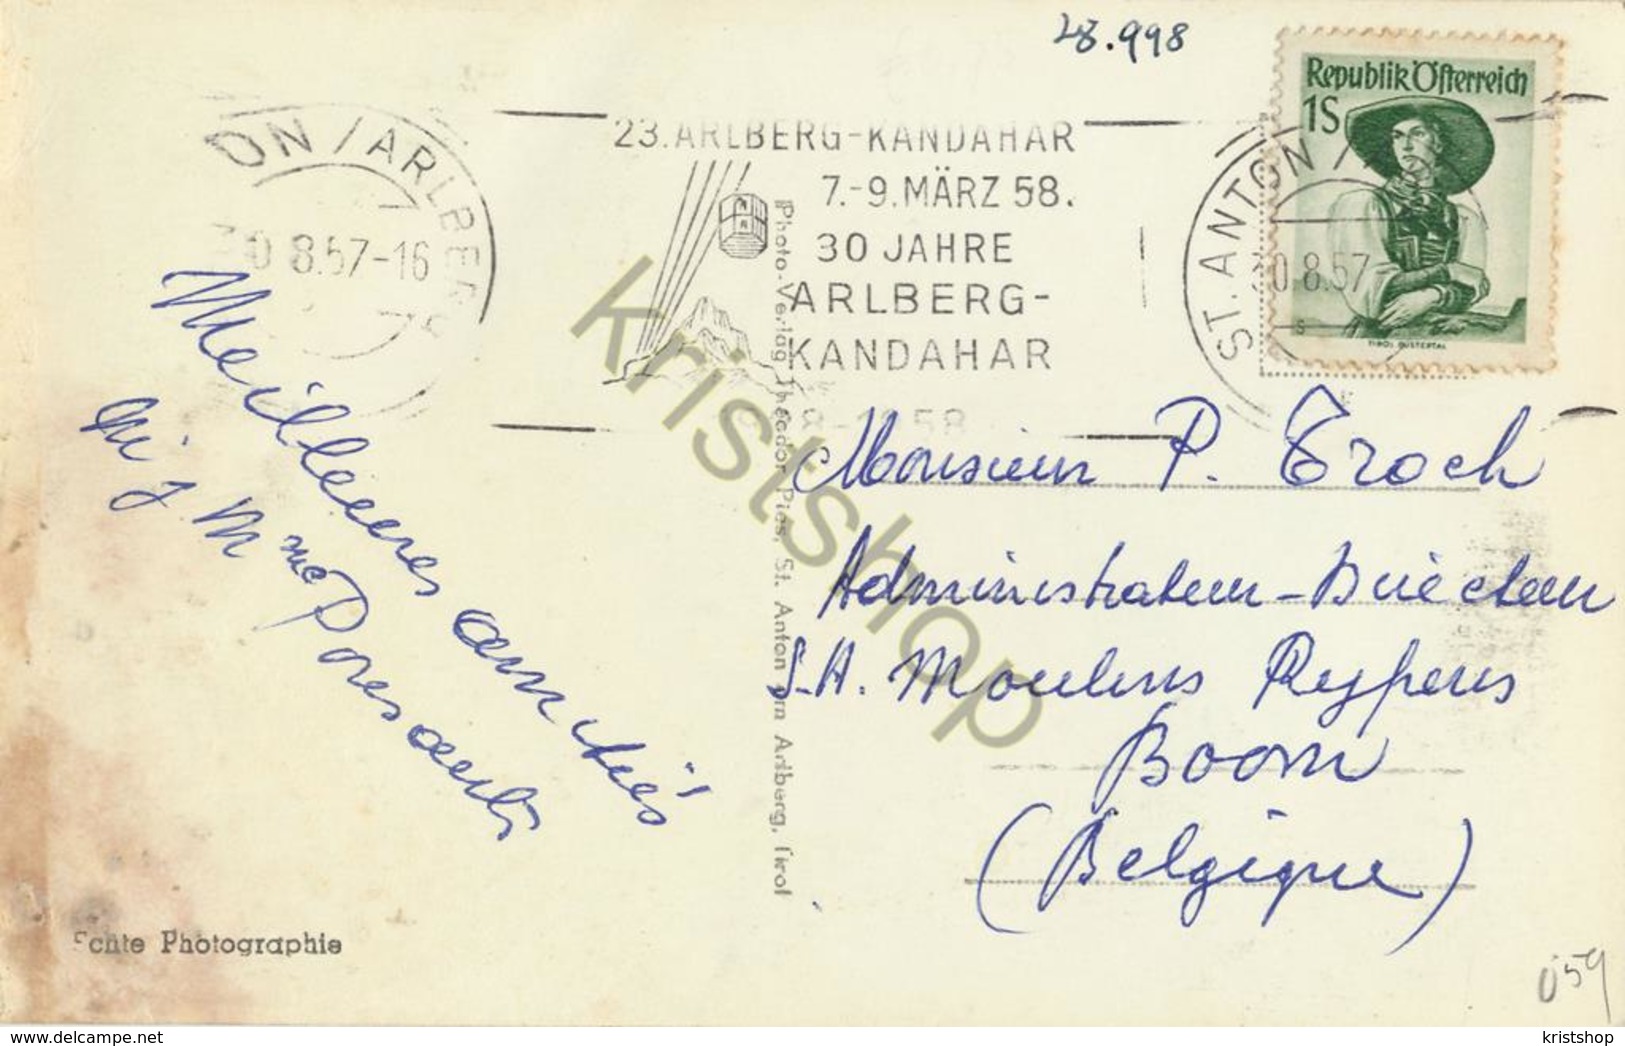 28.998
Republik Österreich
1S
TIROL PUSTERTAL
ON / ARLBERG
30.8.57-16
23. ARLBERG-KANDAHAR
7.-9. MÄRZ 58.
30 JAHRE
ARLBERG-
KANDAHAR
ST. ANTON /
30.8.57
Meilleures amitiés
M me
Photo-Verlag Theodor Pies, St. Anton am Arlberg, Tirol
Monsieur P. Troch
Administrateur-Directeur
S.A. Moulins Rypens
Boom
(Belgique)
Echte Photographie
059
kristshop
www.delcampe.net
kristshop